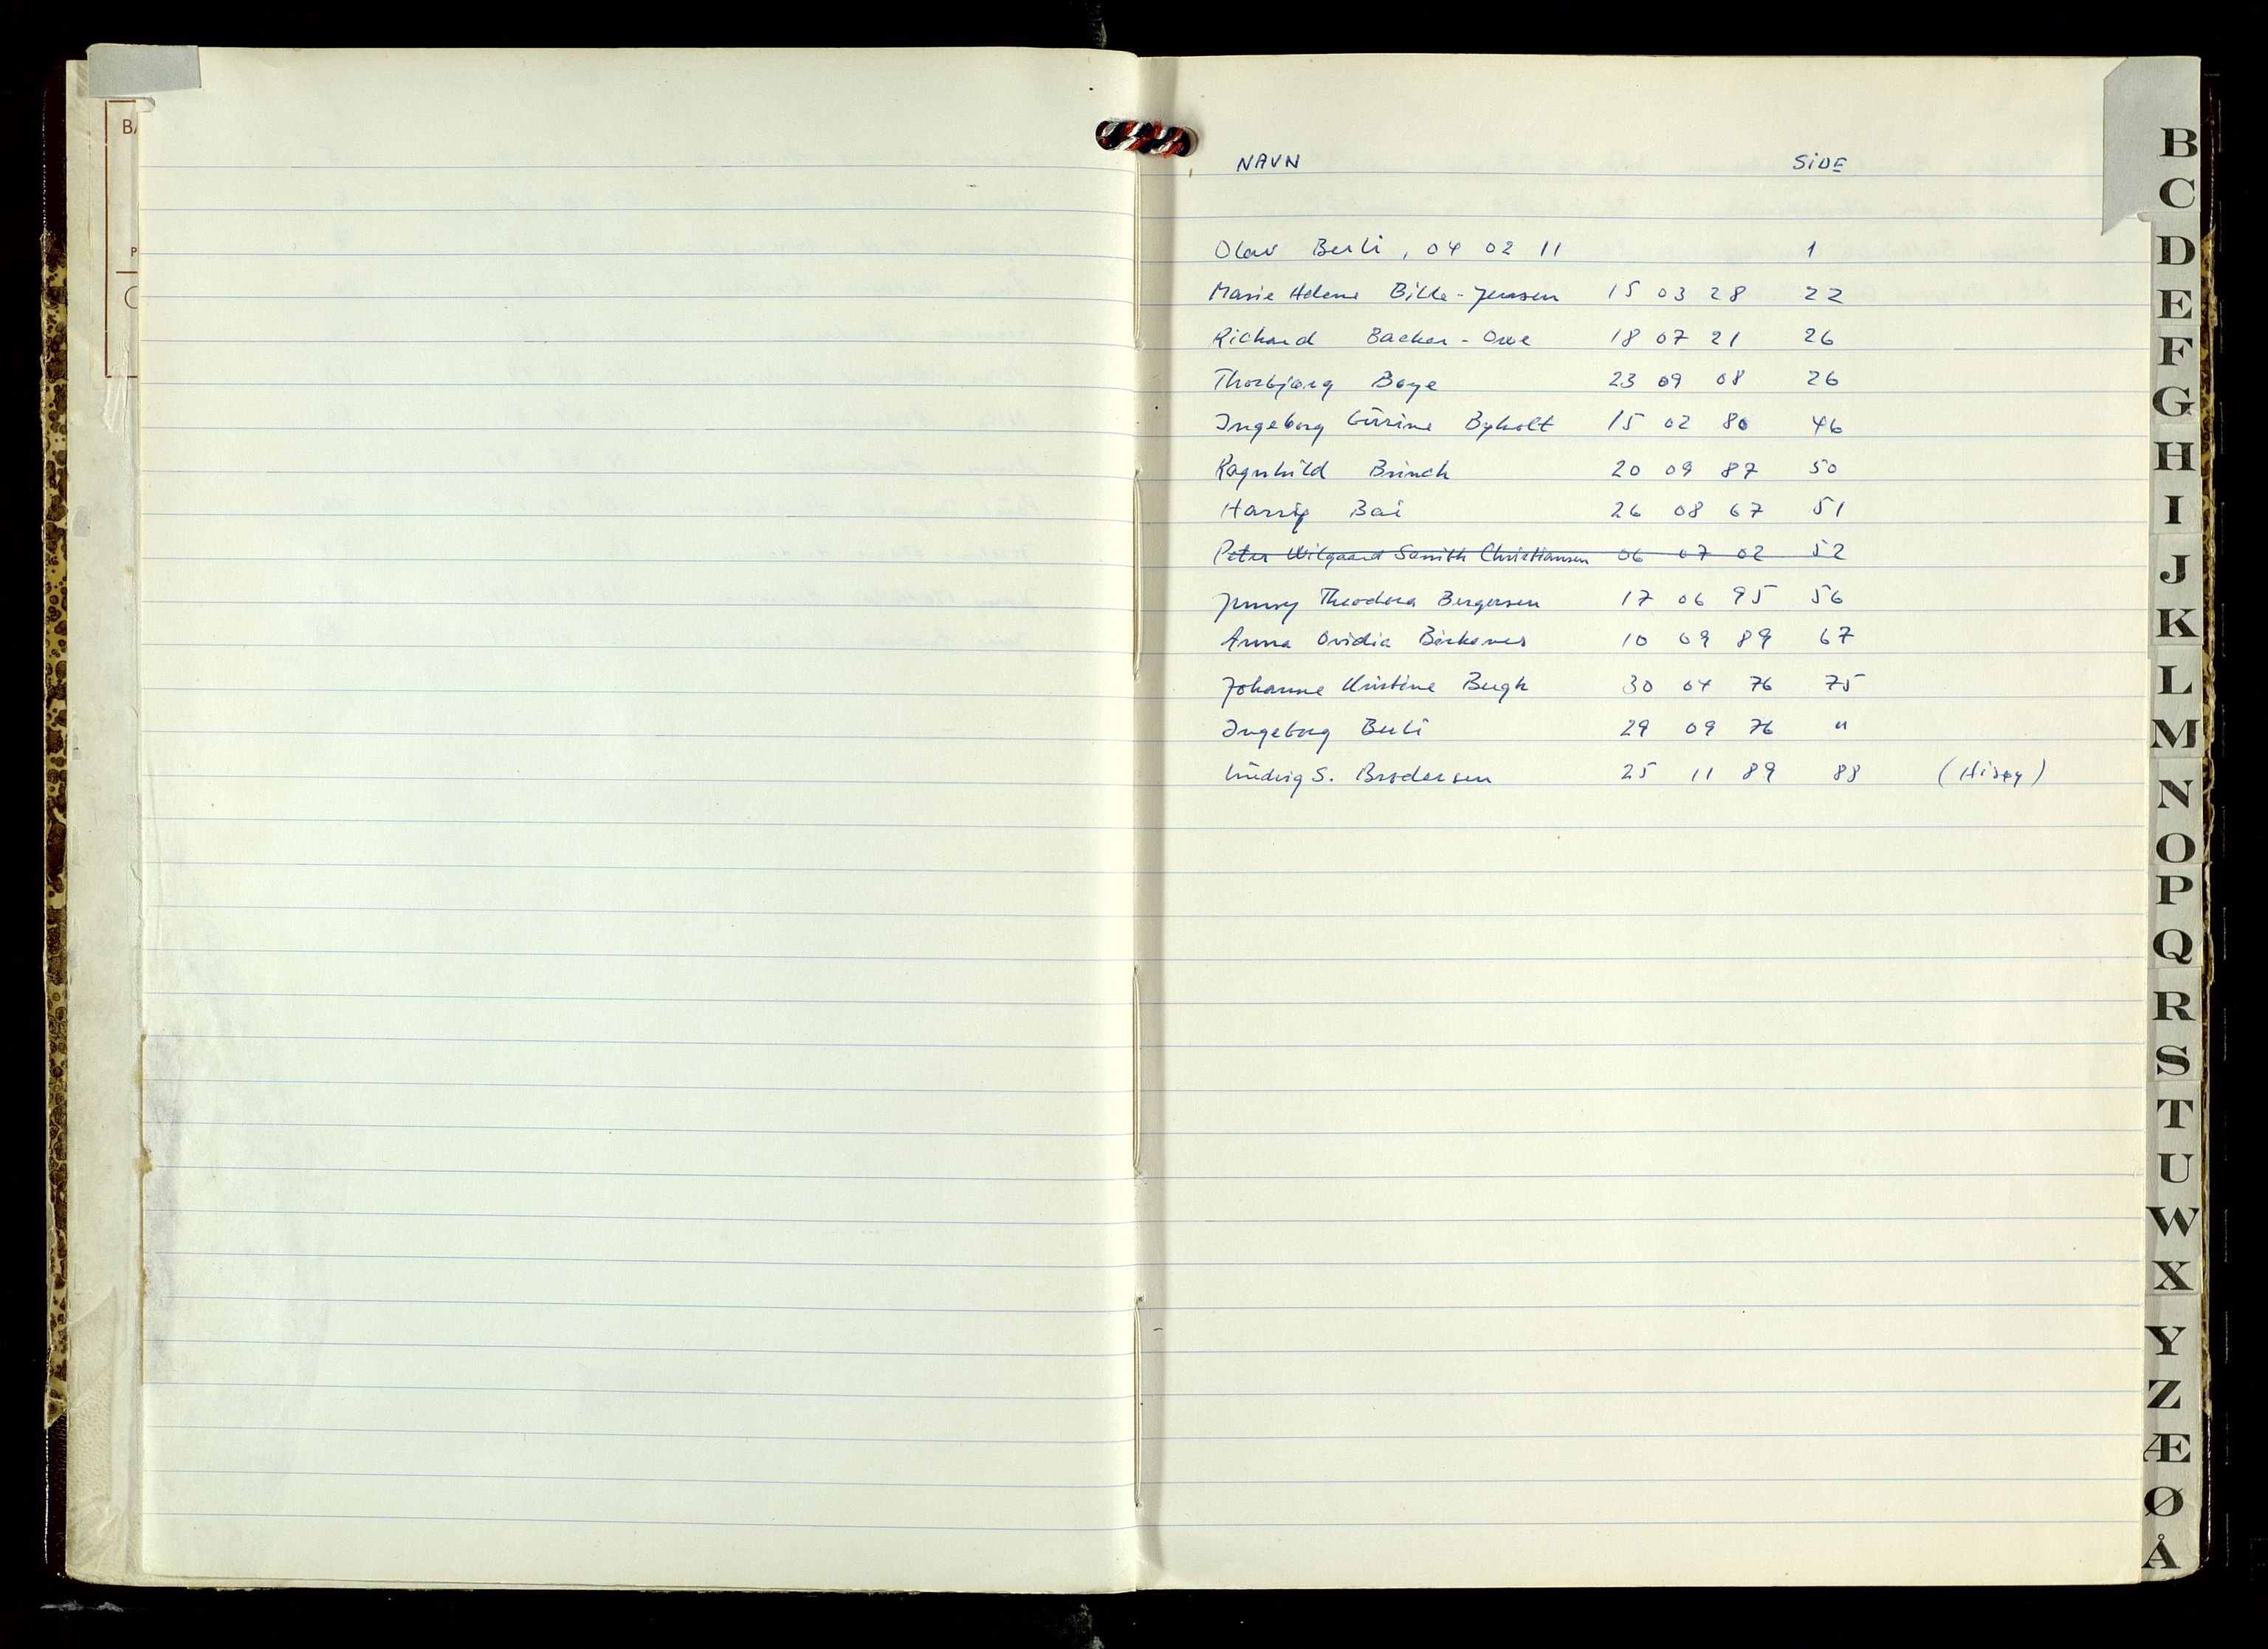 NAVN SIDE
Olav Berli, 04 02 11 1
Marie Helene Bille-Jensen 15 03 28 22
Richard Backer-Owe 18 07 21 26
Thorbjørg Boye 23 09 08 26
Ingeborg Gurine Byholt 15 02 80 46
Ragnhild Brinch 20 09 87 50
Harrig Bai 26 08 67 51
Peter Wilgaard Smith Christiansen 06 07 02 52
Jenny Theodora Bergersen 17 06 95 56
Anna Ovidia 10 09 89 67
Johanne Kristine Bergh 30 04 76 75
Ingeborg Berli 29 09 76 "
Ludvig S. Brodersen 25 11 89 88 (Hisøy)
B
C
D
E
F
G
H
I
J
K
L
M
N
O
P
Q
R
S
T
U
W
X
Y
Z
Æ
Ø
Å